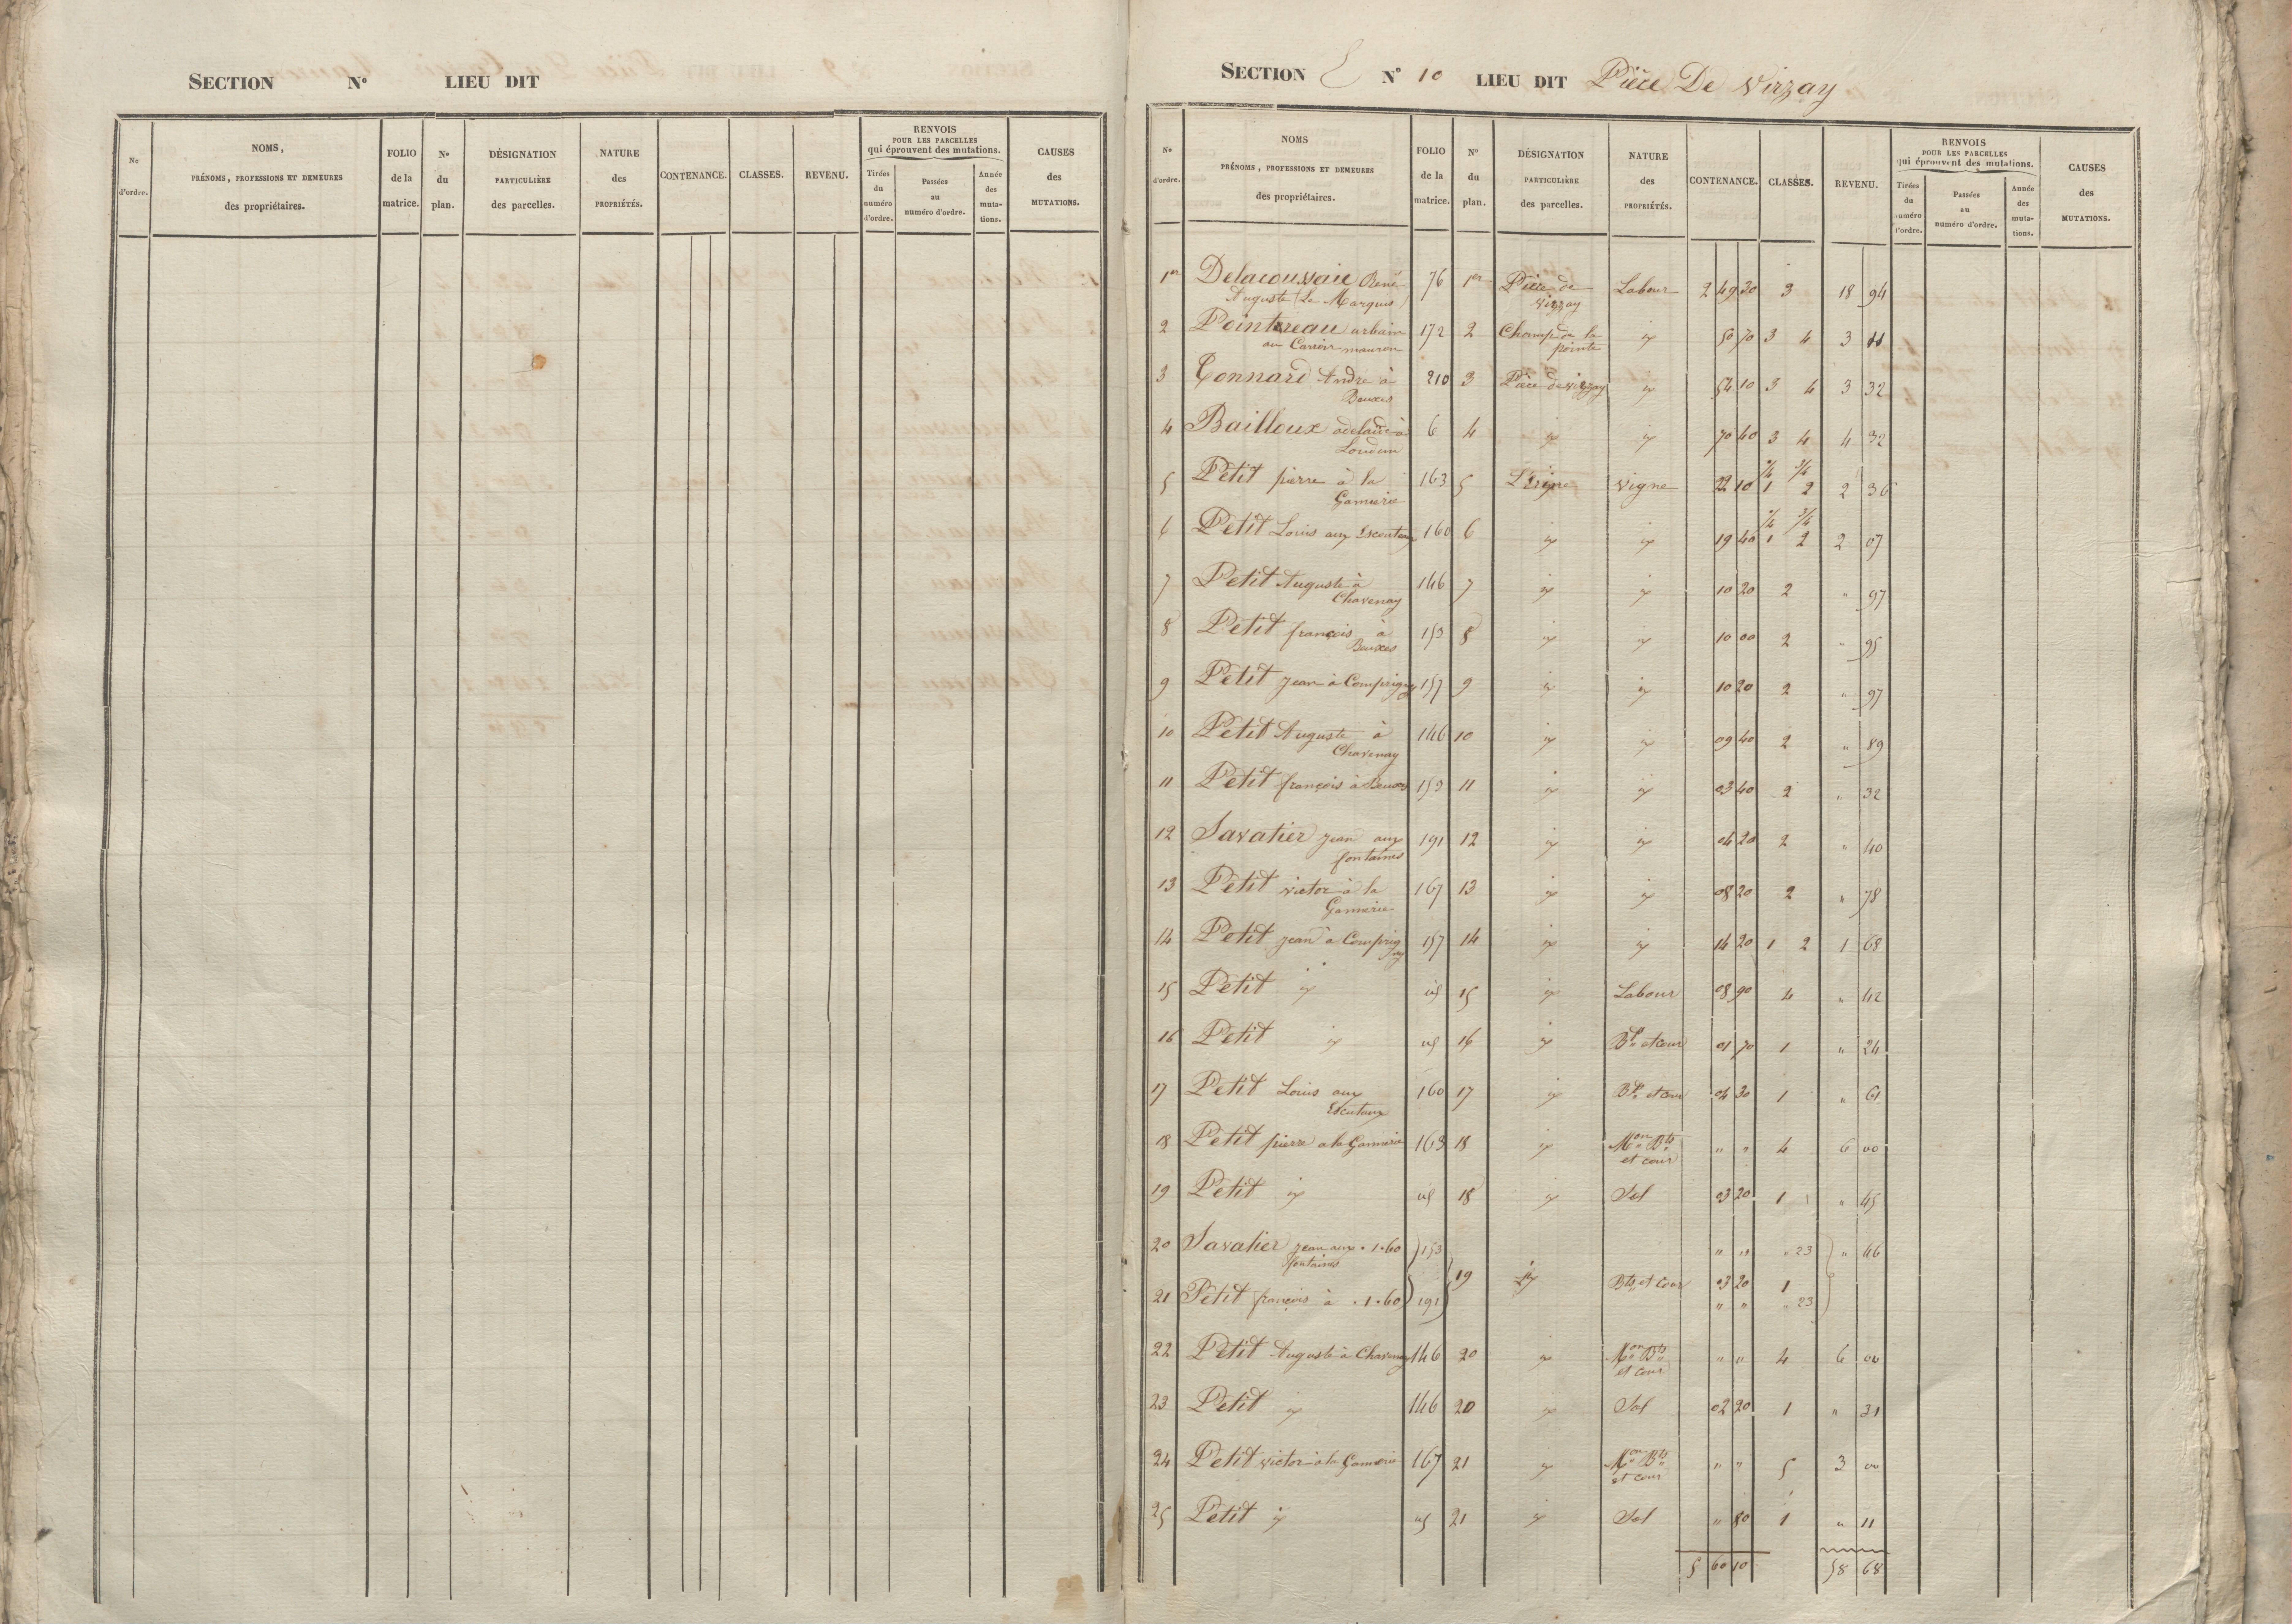 SECTION N° LIEU DIT
No d'ordre.
NOMS,
PRÉNOMS, PROFESSIONS ET DEMEURES
des propriétaires.
FOLIO de la matrice.
No du plan.
DÉSIGNATION PARTICULIÈRE des parcelles.
NATURE des PROPRIÉTÉS.
CONTENANCE.
CLASSES.
REVENU.
RENVOIS
POUR LES PARCELLES
qui éprouvent des mutations.
Tirées du numéro d'ordre.
Passées au numéro d'ordre.
Année des mutations.
CAUSES des MUTATIONS.
SECTION E N° 10 LIEU DIT Pièce De Virzay
No d'ordre.
NOMS
PRÉNOMS, PROFESSIONS ET DEMEURES
des propriétaires.
FOLIO de la matrice.
N° du plan.
DÉSIGNATION PARTICULIÈRE des parcelles.
NATURE des PROPRIÉTÉS.
CONTENANCE.
CLASSES.
REVENU.
RENVOIS
POUR LES PARCELLES
qui éprouvent des mutations.
Tirées du numéro d'ordre.
Passées au numéro d'ordre.
Année des mutations.
CAUSES des MUTATIONS.
1er René 76 1er Pièce de Labour 2 49 30 3 18 94
Auguste (Le Marquis) Virzay
2 Pointreau urbain 172 2 Champ de la y 50 70 3 4 3 11
au Carroir mauron pointe
3 Connard André à 210 3 Pièce de virzay y 54 10 3 4 3 32
Beuxes
4 Bailloux adelaide à 6 4 y y 70 40 3 4 4 32
Loudun
5 Petit pierre à la 163 5 vigne 22 10 1 2 2 36
Gannerie
6 Petit Louis aux 160 6 y y 19 40 1 2 2 07
7 Petit Auguste à 146 7 y y 10 20 2 " 97
Chavenay
8 Petit françois à 153 8 y y 10 00 2 " 95
Beuxes
9 Petit jean à Comprigny 157 9 y y 10 20 2 " 97
10 Petit Auguste à 146 10 y y 09 40 2 " 89
Chavenay
11 Petit françois à Beuxes 153 11 y y 03 40 2 " 32
12 Savatier jean aux 191 12 y y 04 20 2 " 40
fontaines
13 Petit victor à la 167 13 y y 08 20 2 " 78
Gannerie
14 Petit jean à Comprigny 157 14 y y 14 20 1 2 1 68
15 Petit y id 15 y Labour 08 90 4 " 42
16 Petit y id 16 y Bt et cour 01 70 1 " 24
17 Petit Louis aux 160 17 y Bt et cour 04 30 1 " 61
18 Petit pierre a la Gannerie 163 18 y Mon Bts " " 4 6 00
et cour
19 Petit y id 18 y Sol 03 20 1 " 45
20 Savatier jean aux . 1.60 153 " " " 23 " 46
fontaines
19 y Bts et cour 03 20 1
21 Petit françois à . 1.60 191 " " " 23
22 Petit Auguste à Chavenay 146 20 y Mon Bts " " 4 6 00
et cour
23 Petit y 146 20 y Sol 02 20 1 " 31
24 Petit victor à la Gannerie 167 21 y Mon Bts " " 5 3 00
et cour
25 Petit y id 21 y Sol " 80 1 " 11
5 60 10 58 68